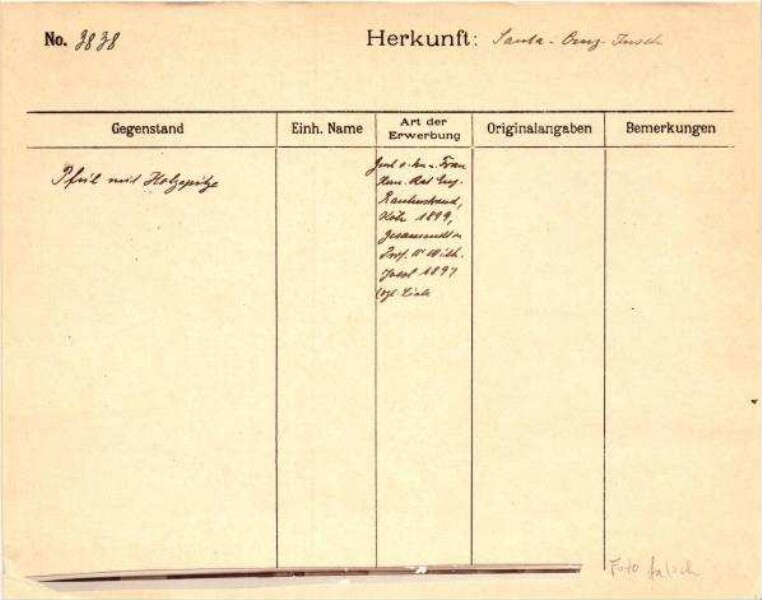 No. 3838
Herkunft: Santa-Cruz-Inseln
Gegenstand
Einh. Name
Art der Erwerbung
Originalangaben
Bemerkungen
Pfeil mit Holzspitze
Frau
Rat Eug.
Rautenstrauch,
Köln 1899,
gesammelt v.
Prof. Dr Wilh.
Joest 1897
Foto falsch